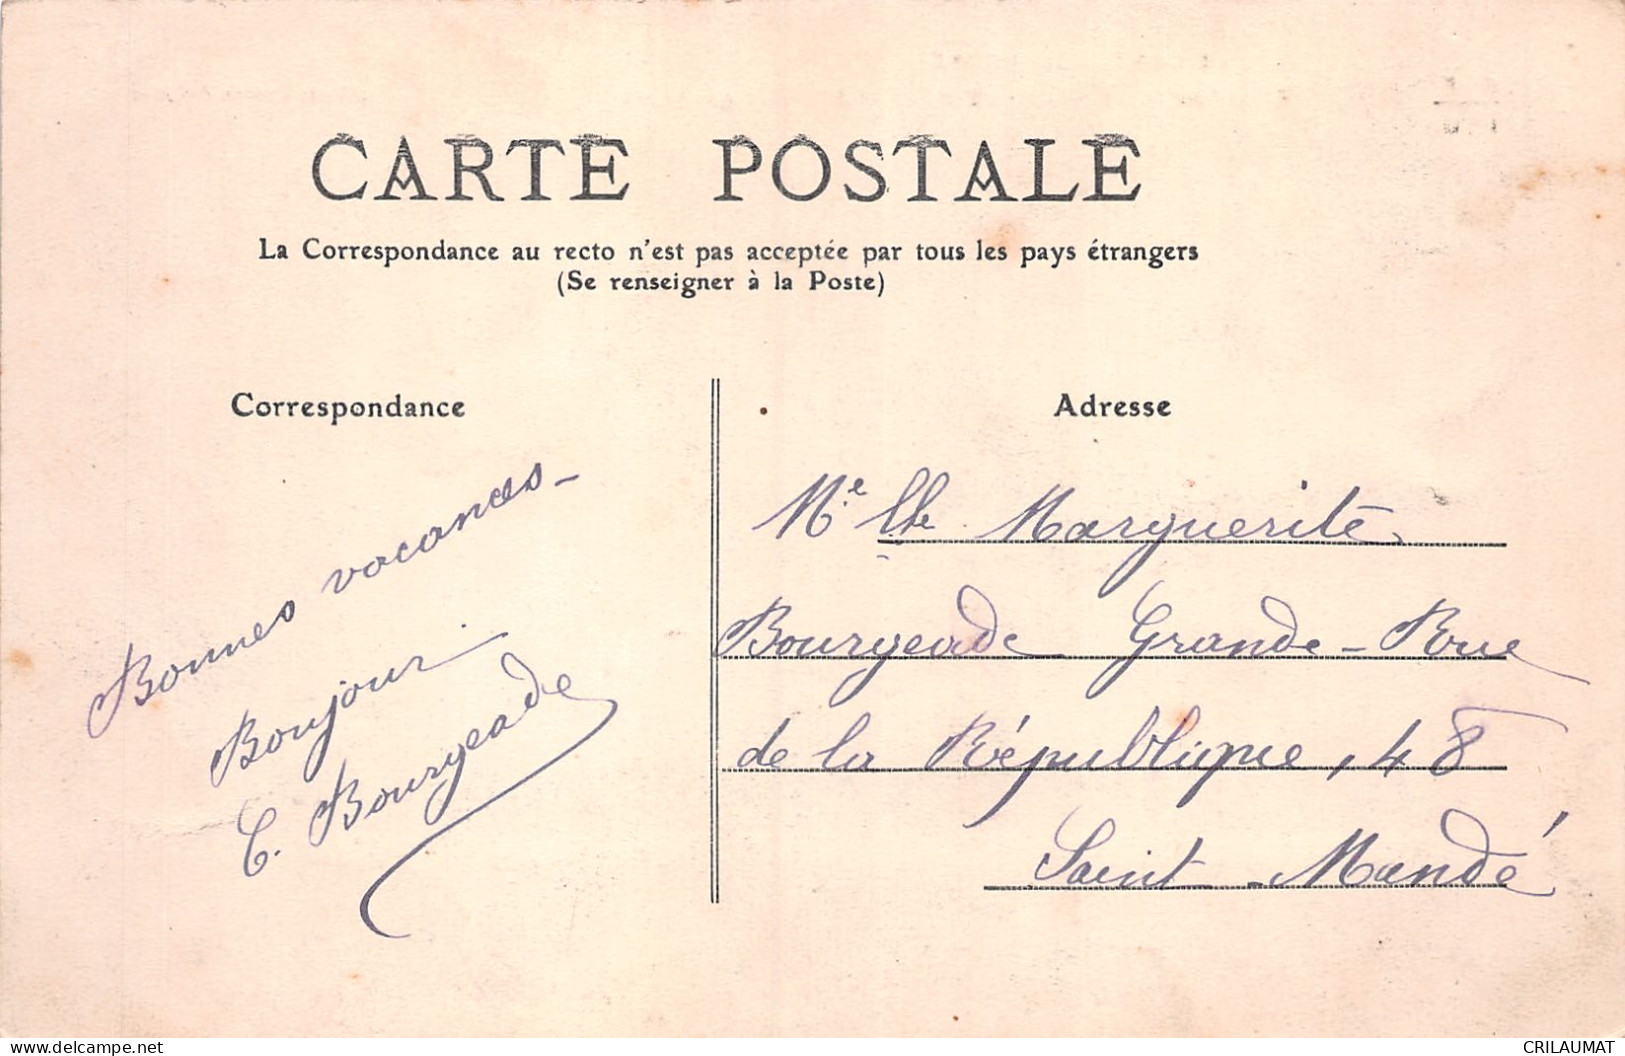 CARTE POSTALE
La Correspondance au recto n'est pas acceptée par tous les pays étrangers
(Se renseigner à la Poste)
Correspondance
Bonnes vacances -
Bonjour
C. Bourgeade
Adresse
Melle Marguerite
Bourgeade Grande-Rue
de la République, 48
Saint-Mandé
www.delcampe.net
CRILAUMAT